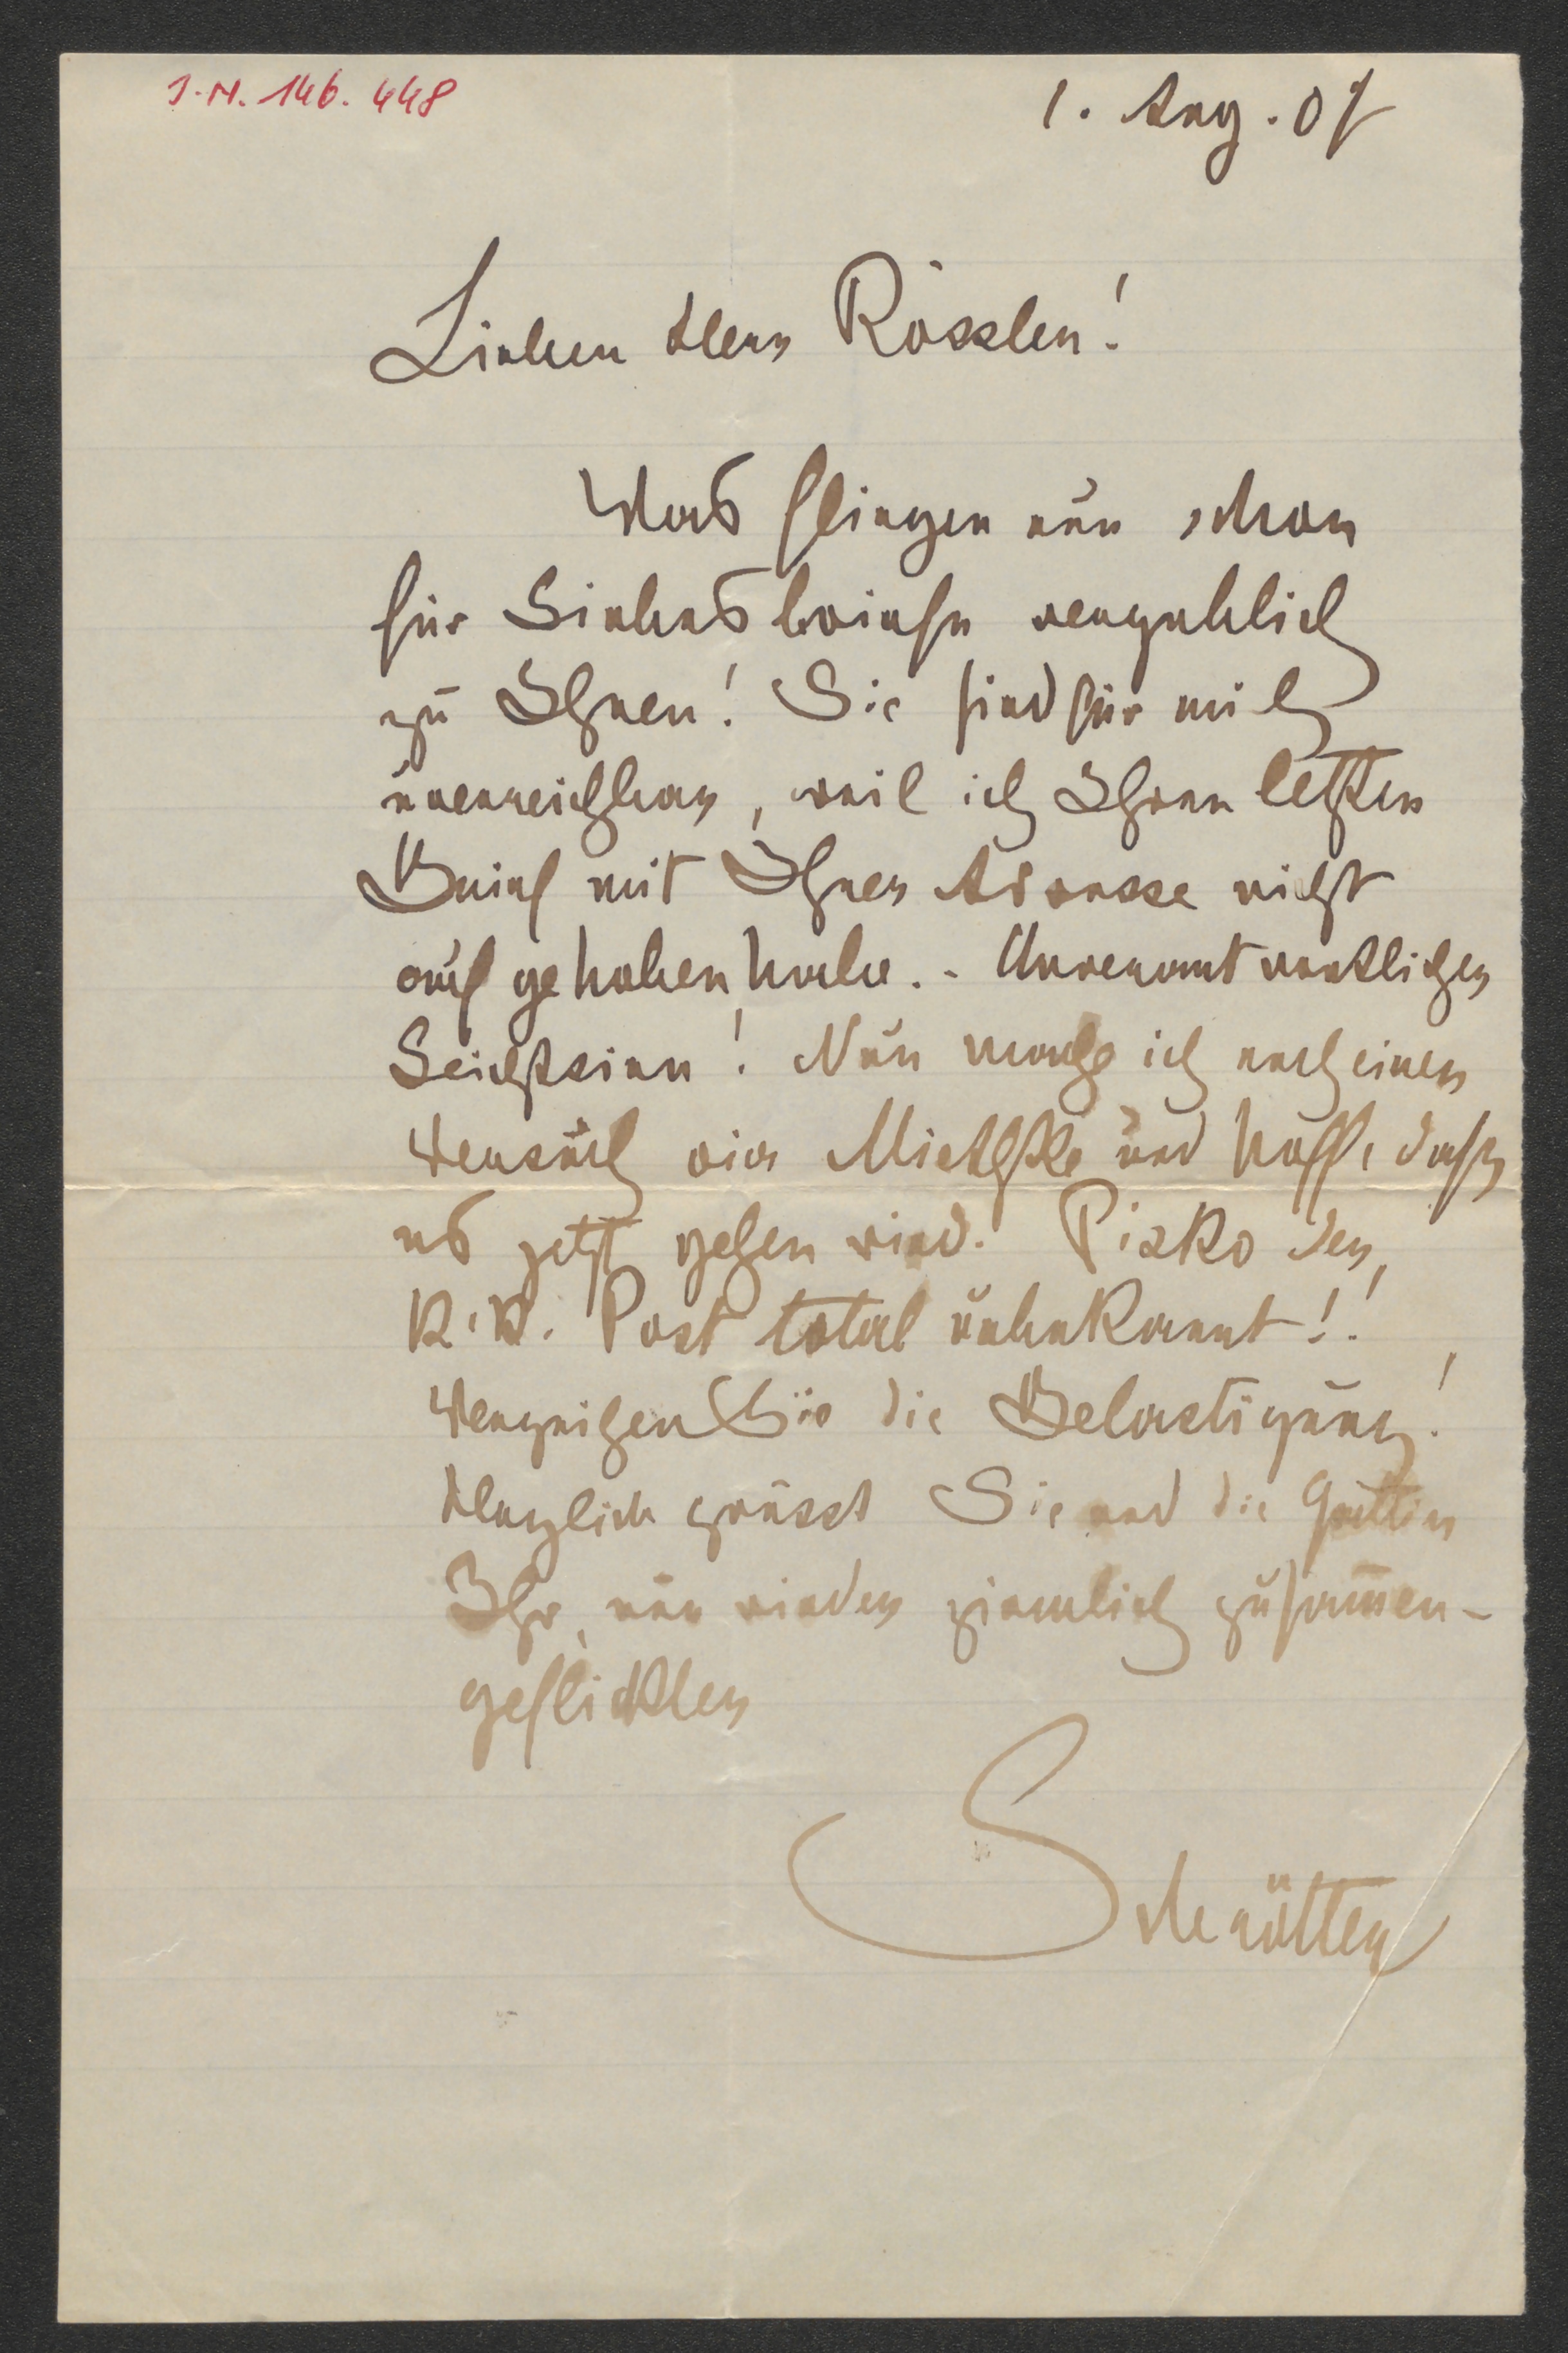 I.N. 146.448
1. Aug. 07
Lieber Herr Rössler!
Was fliegen nun schon
für Liebesbriefe vergeblich
zu Ihnen! Sie sind für mich
unerreichbar, weil ich Ihren letzten
Brief mit Ihrer Adresse nicht
aufgehoben habe. - Unverantwortlicher
Leichtsinn! Nun mache ich noch einen
Versuch via Miethke und hoffe, dass
es jetzt gehen wird. Pisko der
K.K. Post total unbekannt!!
Verzeihen Sie die Belästigung!
Herzlich grüsst Sie und die Gattin
Ihr, nun wieder ziemlich zusammen-
geflickter
Schrötter